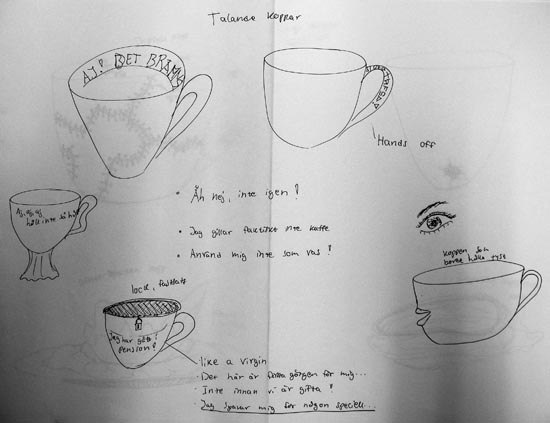 Talande koppar
AJ! DET BRÄNNS
Hands off
Åh nej, inte igen!
Aj, aj, aj
håll inte så hårt
Jag gillar faktiskt inte kaffe
Använd mig inte som vas!
koppen som
borde hålla tyst
lock,
Jag har gått i
pension!
like a virgin
Det här är första gången för mig...
Inte innan vi är gifta!
Jag sparar mig för någon speciell...